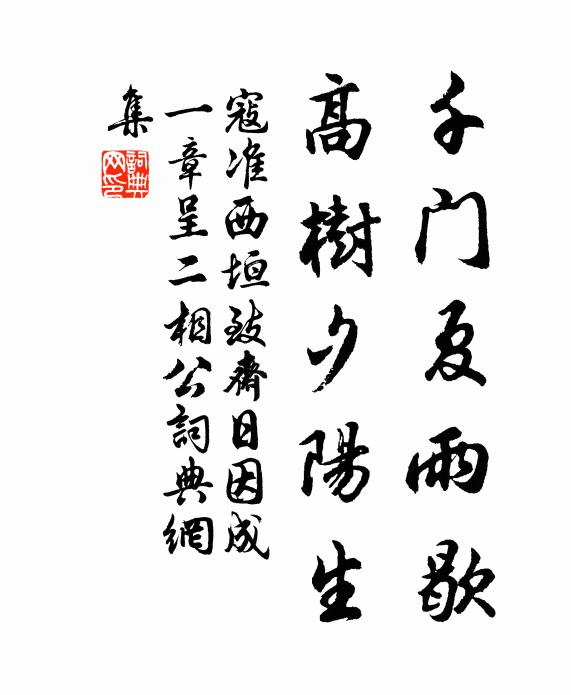 千门夏雨歇
高樹夕陽生
寇准西垣致齋日因成
一章呈二相公詞典網
集
詞典
网印